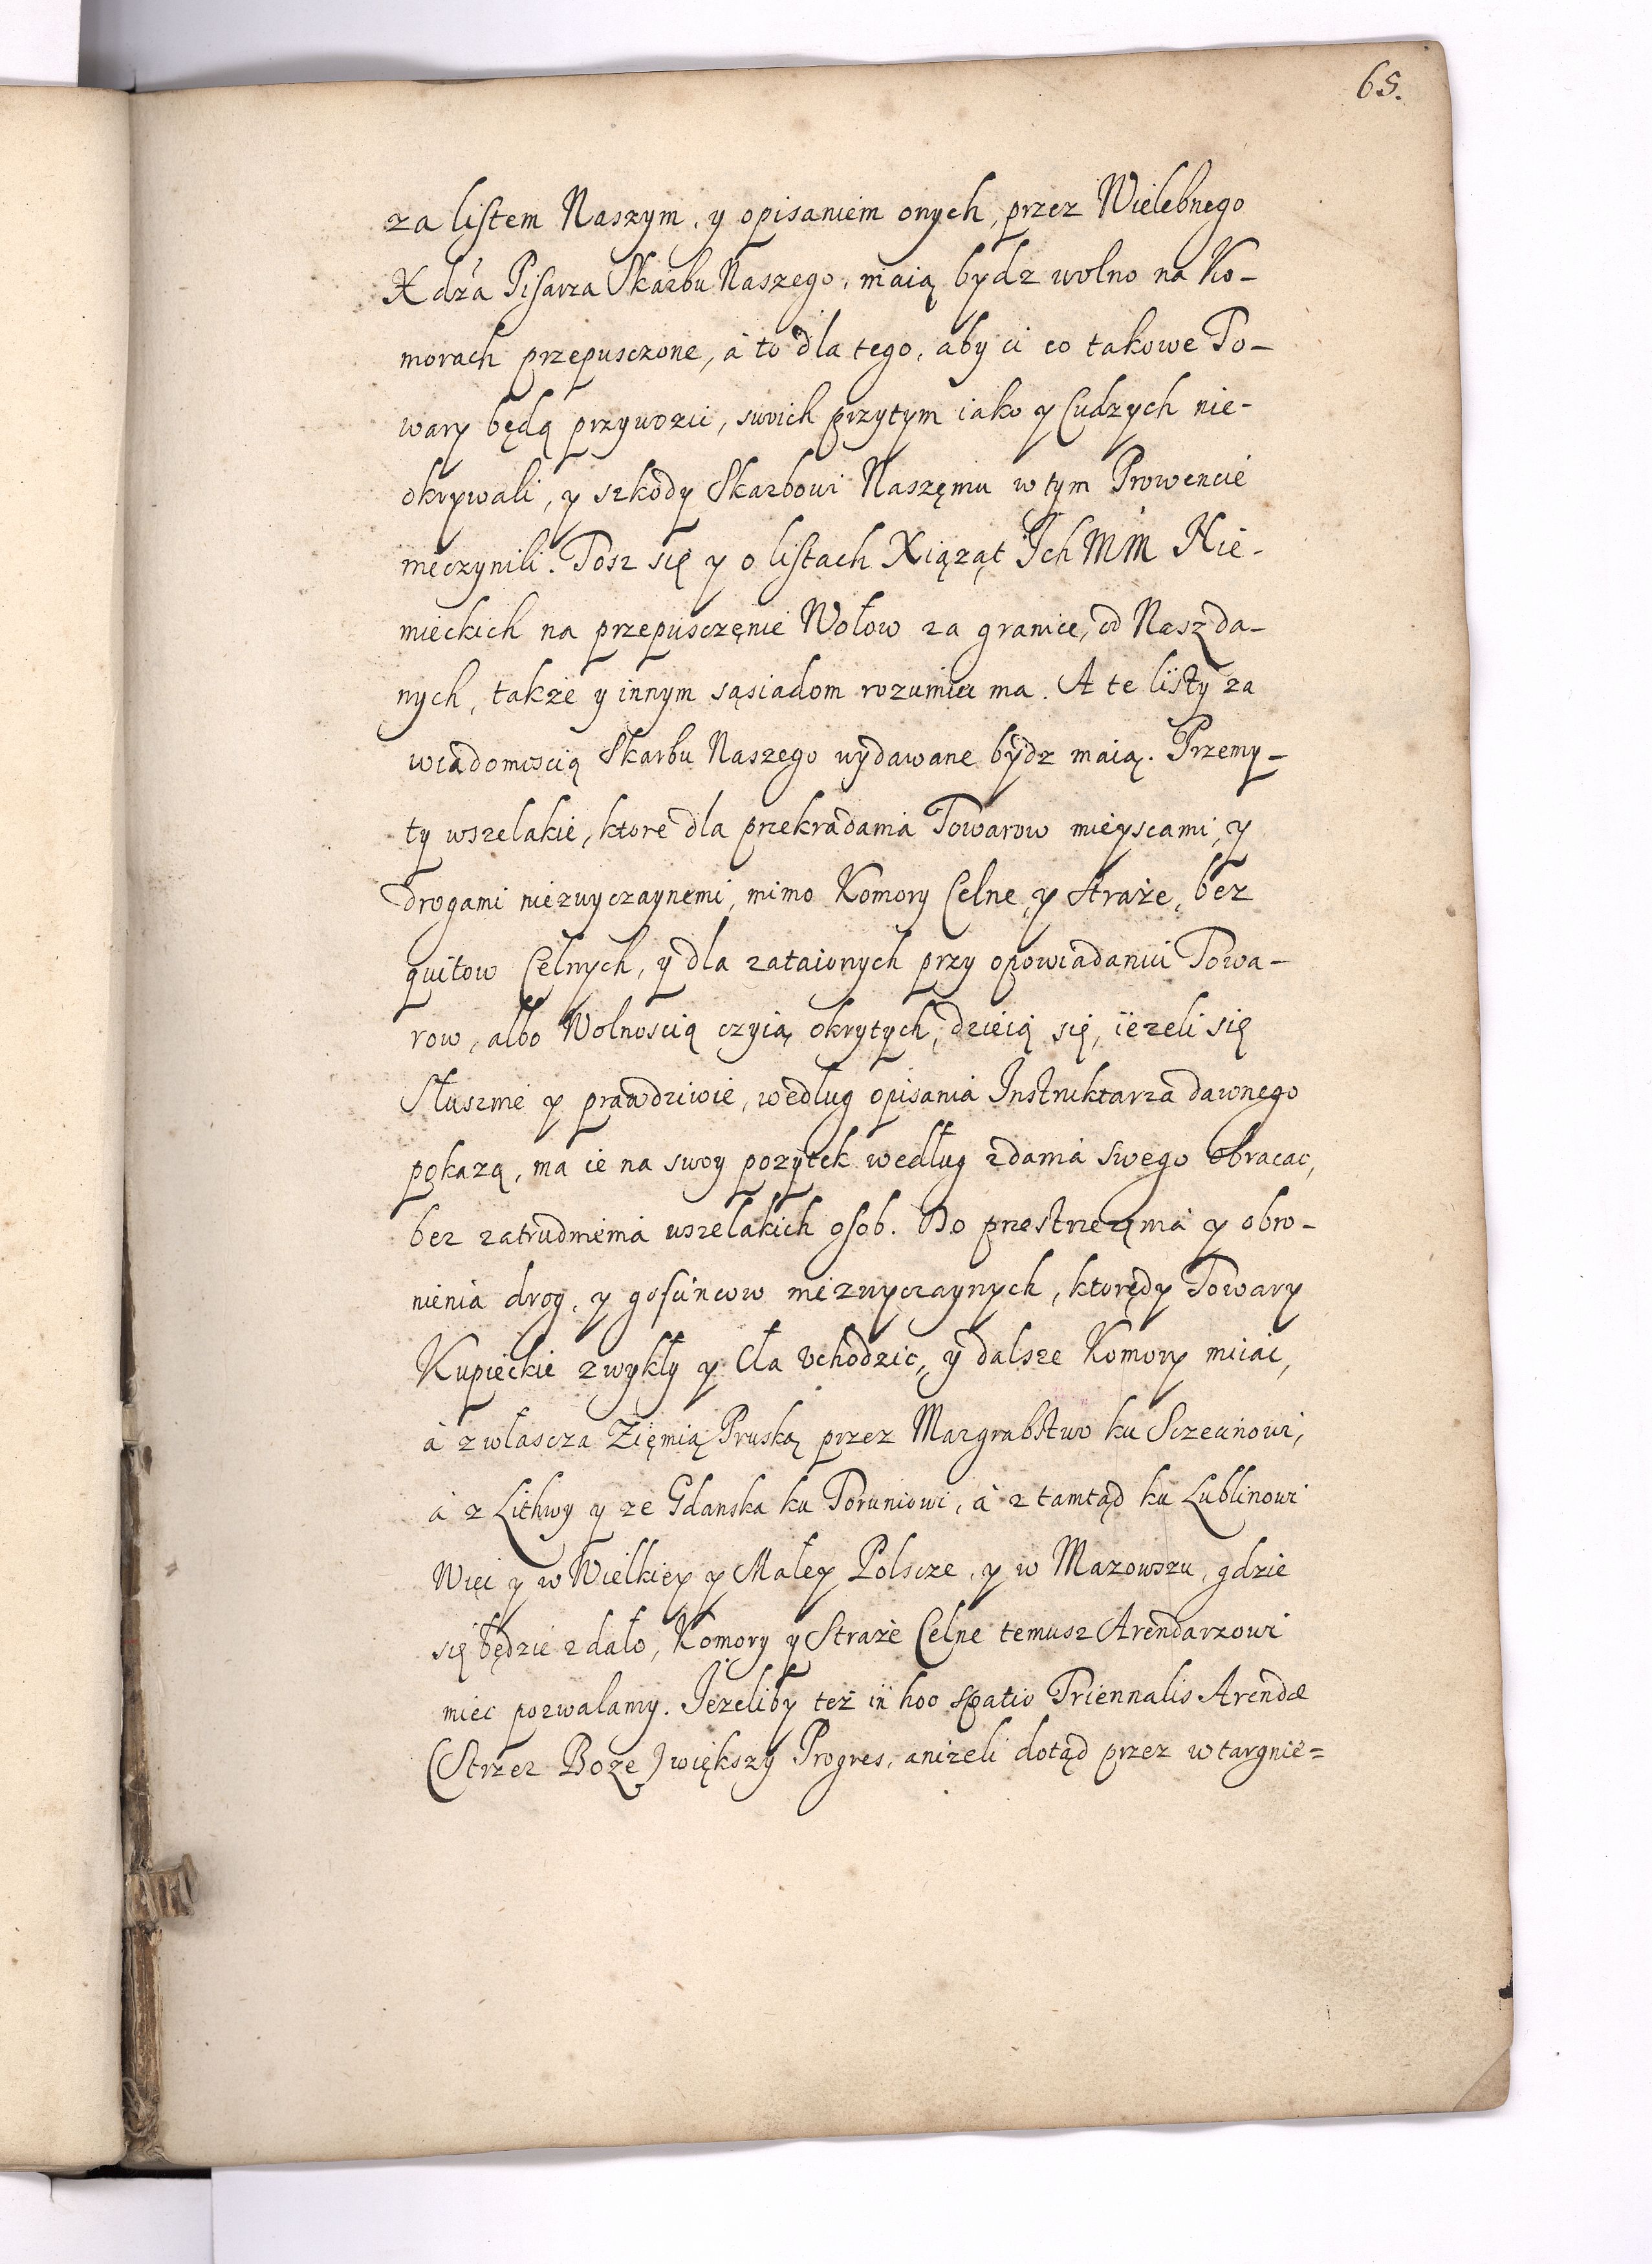 65.
za listem Naszym, y opisaniem onych, przez Wielebnego
Xdza Pisarza Skarbu Naszego, maią bydz wolno na Ko-
morach przepusczone, à to dla tego, aby ci co takowe To-
wary będą przywozic, swoich przytym iako y Cudzych nie-
okrywali, y szkody Skarbowi Naszęmu w tym Prowencie
nieczynili. Tosz się y o listach Xiąząt Ich MM Nie-
mieckich na przepusczęnie Wołow za granice, od Nasz da-
nych, także y innym sąsiadom rozumiec ma. A te listy za
wiadomoscią Skarbu Naszego wydawane bydz maią. Przemy-
ty wszelakie, ktore dla przekradania Towarow mieyscami, y
drogami niezwyczaynemi, mimo Komory Celne, y Straże, bez
quitow Celnych, y dla zataionych przy opowiadaniu Towa-
row, albo Wolnoscią czyią okrytych, dzieią się, ieżeli się
Słusznie y prawdziwie, według opisania Instruktarza dawnego
pokazą, ma ie na swoy pozytek według zdania swego obracac,
bez zatrudnienia wszelakich osob. Do przestrzezęnia y obro-
nienia drog, y goscincow niezwyczaynych, ktorędy Towary
Kupieckie zwykły y Cła Uchodzic, y dalsze Komory miiac,
à zwłascza Zięmią Pruską przez Margrabstwo ku Sczecinowi,
à z Lithwy y ze Gdanska ku Toruniowi, à z tamtąd ku Lublinowi
Więc y w Wielkiey y Małey Polscze, y w Mazowszu, gdzie
się będzie zdało, Komory y Straże Celne temusz Arendarzowi
miec pozwalamy. Jeżeliby też in hoc spatio Triennalis Arendæ
(Strzez Boże) większy Progres, aniżeli dotąd przez wtargnie=